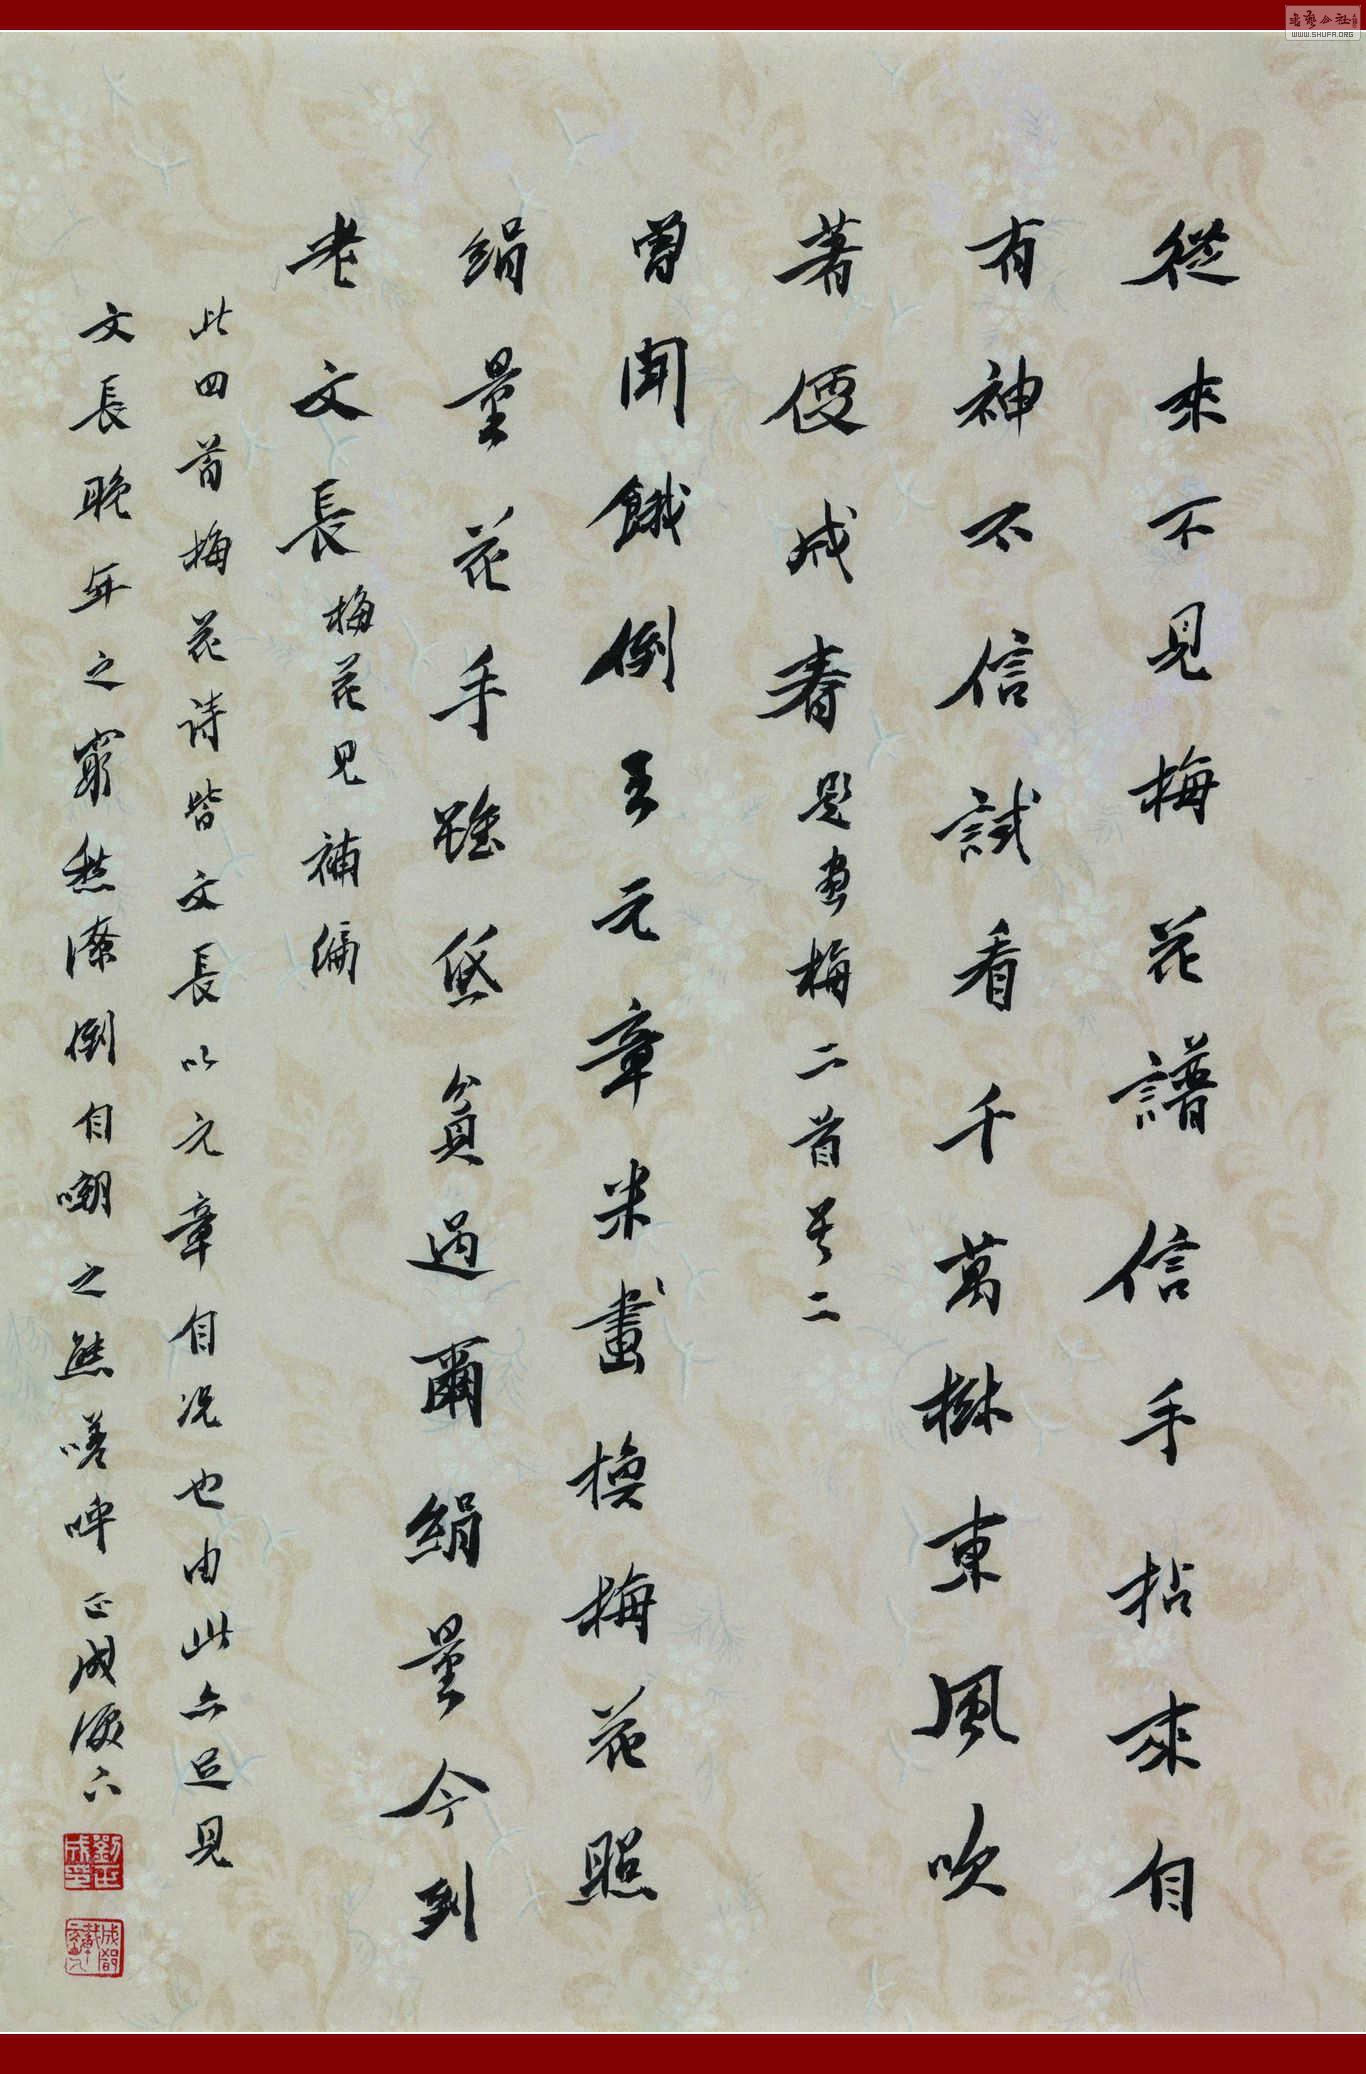 從來不見梅花譜信手拈來自
有神不信試看千萬樹東風吹
著便成春題畫梅二首其二
曾聞餓倒王元章米畫換梅花照
絹量花手雖低貧過爾絹量今到
老文長梅花見補編
此四首梅花詩皆文長以元章自況也由此亦足見
文長晚年之窮愁潦倒自嘲之態嗟呼正成
WWW.SHUFA.ORG